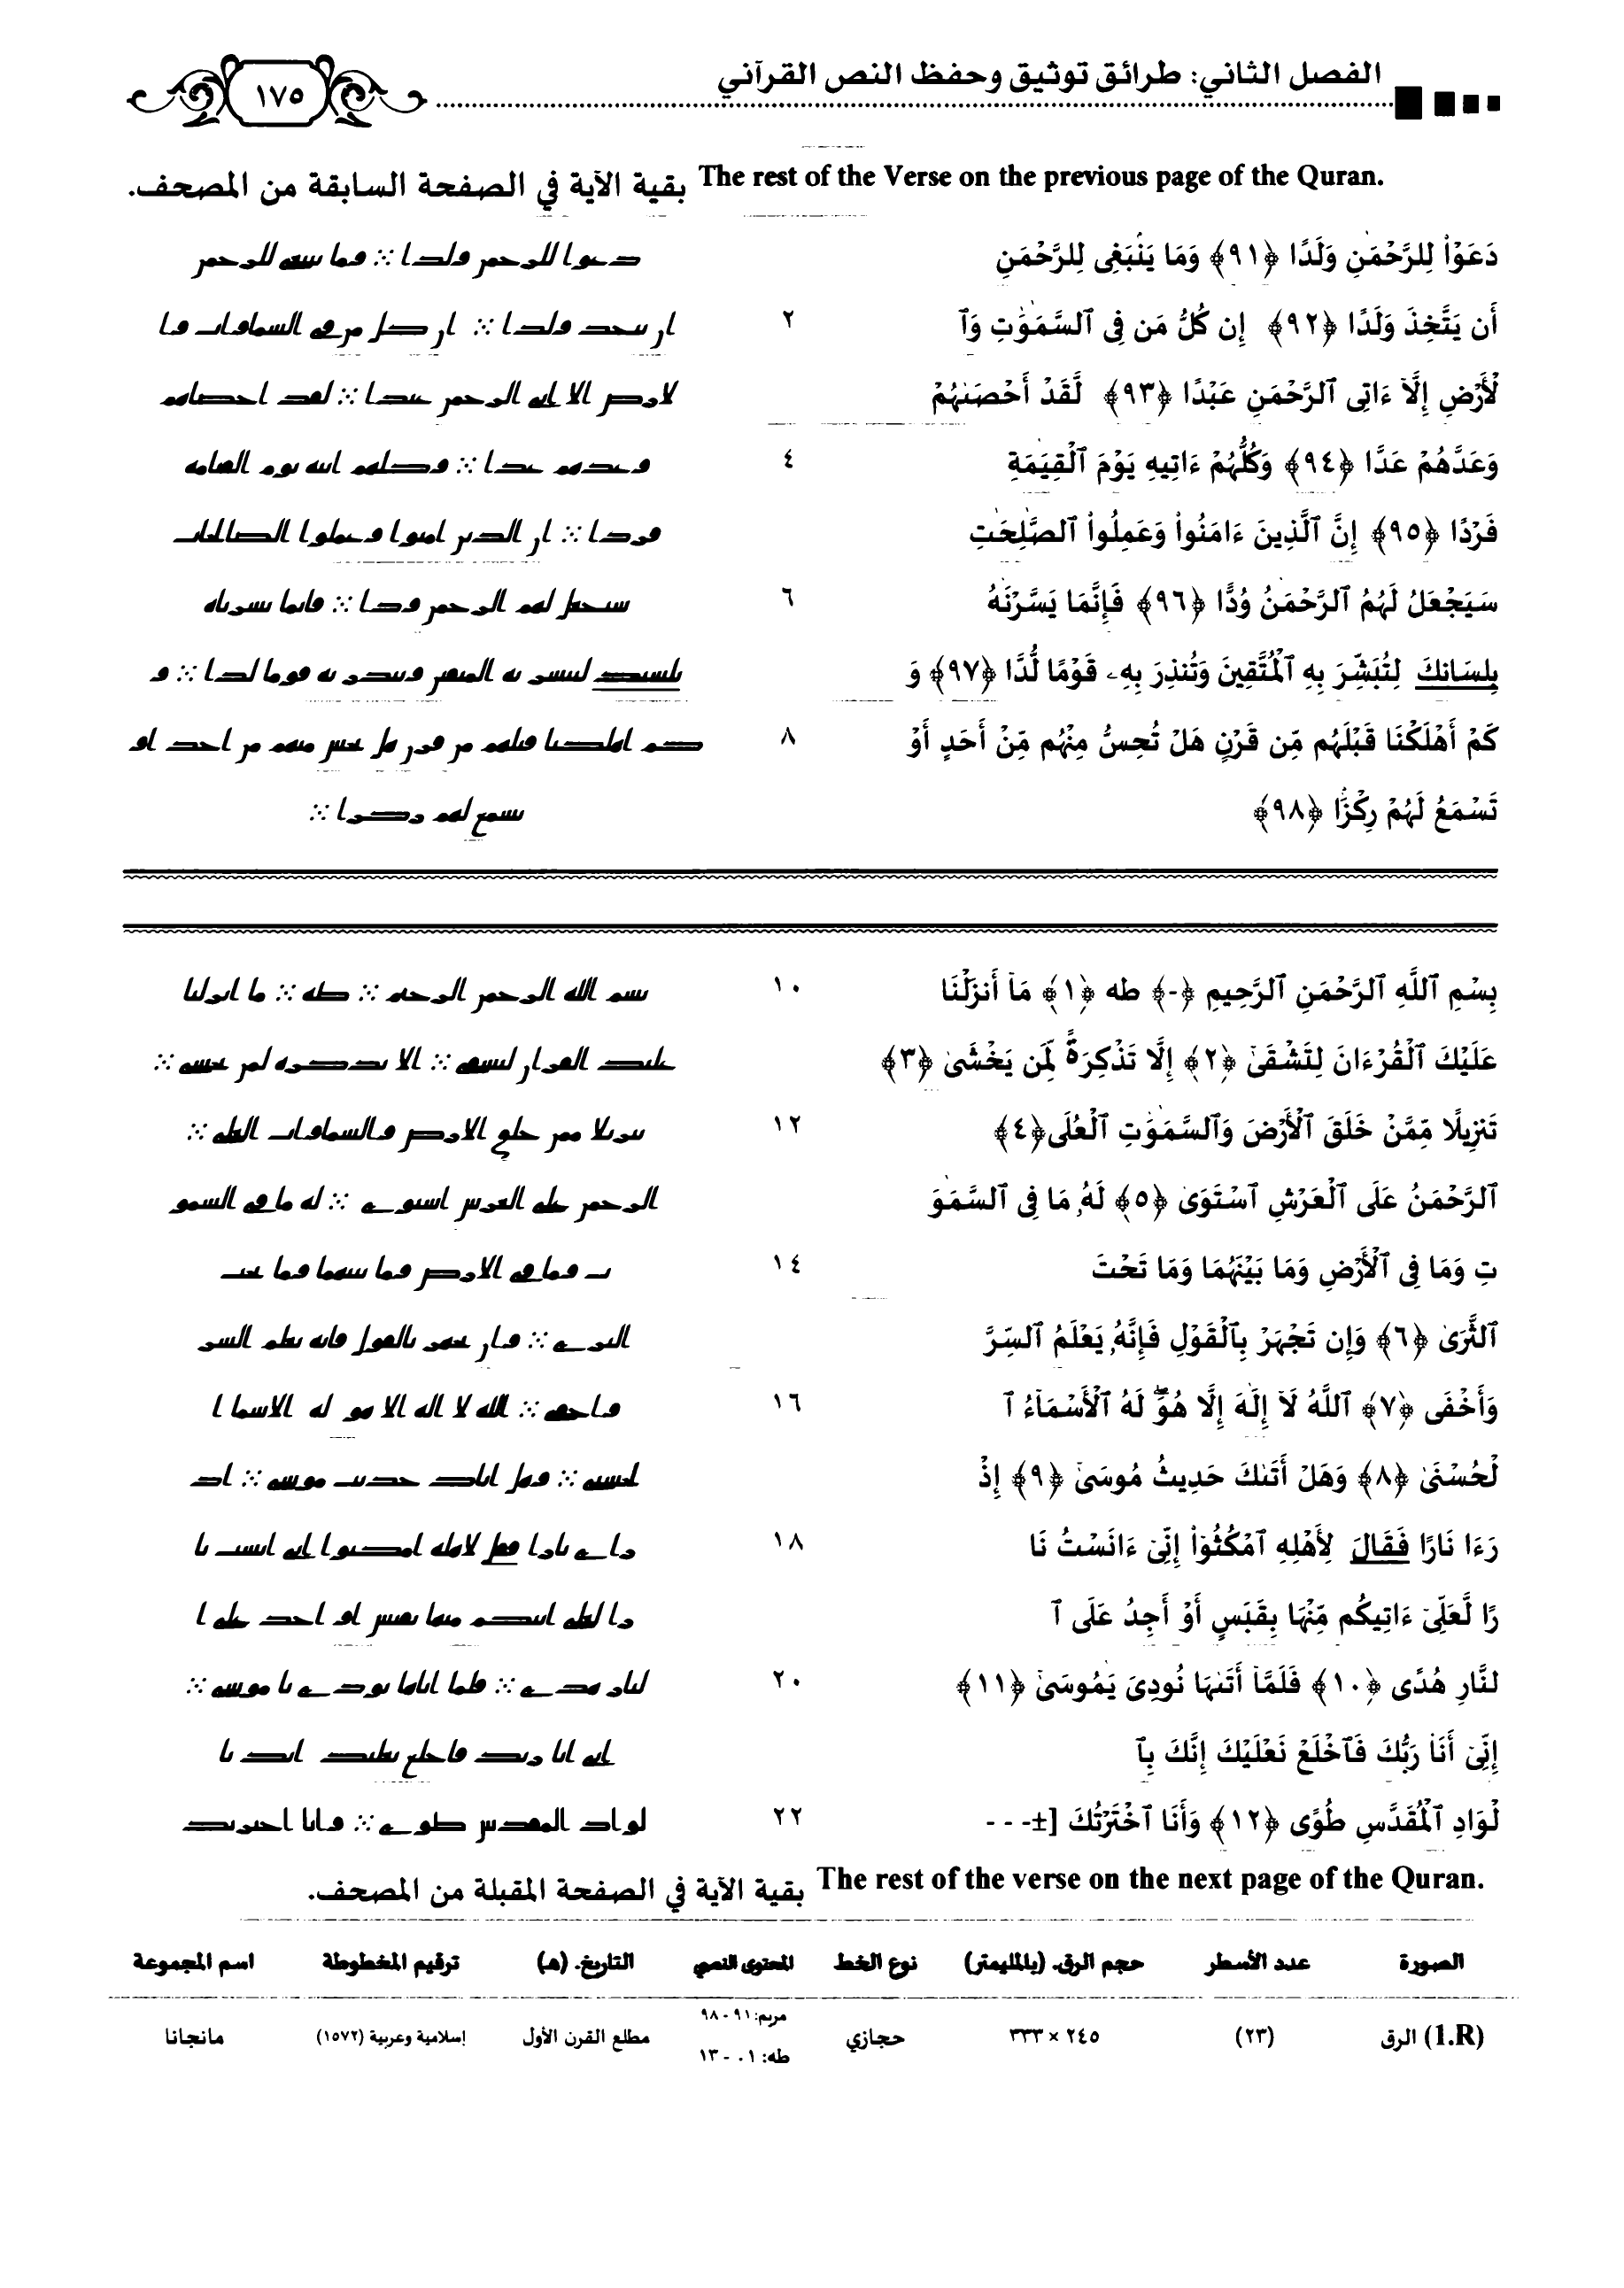 الفصل الثاني: طرائق توثيق وحفظ النص القرآني
١٧٥
The rest of the Verse on the previous page of the Quran. بقية الآية في الصفحة السابقة من المصحف.
دَعَوۡاْ لِلرَّحۡمَٰنِ وَلَدٗا ﴿٩١﴾ وَمَا يَنۢبَغِي لِلرَّحۡمَٰنِ
دعوا للرحمن ولدا ⁘ وما ينبغي للرحمن
أَن يَتَّخِذَ وَلَدًا ﴿٩٢﴾ إِن كُلُّ مَن فِي ٱلسَّمَٰوَٰتِ وَٱ
٢
ان يتخذ ولدا ⁘ ان كل من في السماوات وا
لۡأَرۡضِ إِلَّآ ءَاتِي ٱلرَّحۡمَٰنِ عَبۡدٗا ﴿٩٣﴾ لَّقَدۡ أَحۡصَىٰهُمۡ
لارض الا اتي الرحمن عبدا ⁘ لقد احصاهم
وَعَدَّهُمۡ عَدّٗا ﴿٩٤﴾ وَكُلُّهُمۡ ءَاتِيهِ يَوۡمَ ٱلۡقِيَٰمَةِ
٤
وعدهم عدا ⁘ وكلهم اتيه يوم القيامه
فَرۡدًا ﴿٩٥﴾ إِنَّ ٱلَّذِينَ ءَامَنُواْ وَعَمِلُواْ ٱلصَّٰلِحَٰتِ
فردا ⁘ ان الذين امنوا وعملوا الصالحات
سَيَجۡعَلُ لَهُمُ ٱلرَّحۡمَٰنُ وُدّٗا ﴿٩٦﴾ فَإِنَّمَا يَسَّرۡنَٰهُ
٦
سيجعل لهم الرحمن ودا ⁘ فانما يسرناه
بِلِسَانِكَ لِتُبَشِّرَ بِهِ ٱلۡمُتَّقِينَ وَتُنذِرَ بِهِۦ قَوۡمٗا لُّدّٗا ﴿٩٧﴾ وَ
بلسنك لتبشر به المتقين وتنذر به قوما لدا ⁘ و
كَمۡ أَهۡلَكۡنَا قَبۡلَهُم مِّن قَرۡنٍ هَلۡ تُحِسُّ مِنۡهُم مِّنۡ أَحَدٍ أَوۡ
٨
كم اهلكنا قبلهم من قرن هل تحس منهم من احد او
تَسۡمَعُ لَهُمۡ رِكۡزَۢا ﴿٩٨﴾
تسمع لهم ركزا ⁘
بِسۡمِ ٱللَّهِ ٱلرَّحۡمَٰنِ ٱلرَّحِيمِ ﴿-﴾ طه ﴿١﴾ مَآ أَنزَلۡنَا
١٠
بسم الله الرحمن الرحيم ⁘ طه ⁘ ما انزلنا
عَلَيۡكَ ٱلۡقُرۡءَانَ لِتَشۡقَىٰٓ ﴿٢﴾ إِلَّا تَذۡكِرَةٗ لِّمَن يَخۡشَىٰ ﴿٣﴾
عليك القران لتشقى ⁘ الا تذكره لمن يخشى ⁘
تَنزِيلٗا مِّمَّنۡ خَلَقَ ٱلۡأَرۡضَ وَٱلسَّمَٰوَٰتِ ٱلۡعُلَى ﴿٤﴾
١٢
تنزيلا ممن خلق الارض والسماوات العلى ⁘
ٱلرَّحۡمَٰنُ عَلَى ٱلۡعَرۡشِ ٱسۡتَوَىٰ ﴿٥﴾ لَهُۥ مَا فِي ٱلسَّمَٰوَ
الرحمن على العرش استوى ⁘ له ما في السمو
تِ وَمَا فِي ٱلۡأَرۡضِ وَمَا بَيۡنَهُمَا وَمَا تَحۡتَ
١٤
ت وما في الارض وما بينهما وما تحت
ٱلثَّرَىٰ ﴿٦﴾ وَإِن تَجۡهَرۡ بِٱلۡقَوۡلِ فَإِنَّهُۥ يَعۡلَمُ ٱلسِّرَّ
الثرى ⁘ وان تجهر بالقول فانه يعلم السر
وَأَخۡفَى ﴿٧﴾ ٱللَّهُ لَآ إِلَٰهَ إِلَّا هُوَۖ لَهُ ٱلۡأَسۡمَآءُ ٱ
١٦
واخفى ⁘ الله لا اله الا هو له الاسما ا
لۡحُسۡنَىٰ ﴿٨﴾ وَهَلۡ أَتَىٰكَ حَدِيثُ مُوسَىٰٓ ﴿٩﴾ إِذۡ
لحسنى ⁘ وهل اتاك حديث موسى ⁘ اذ
رَءَا نَارٗا فَقَالَ لِأَهۡلِهِ ٱمۡكُثُوٓاْ إِنِّيٓ ءَانَسۡتُ نَا
١٨
راى نارا فقل لاهله امكثوا اني انست نا
رٗا لَّعَلِّيٓ ءَاتِيكُم مِّنۡهَا بِقَبَسٍ أَوۡ أَجِدُ عَلَى ٱ
را لعلي اتيكم منها بقبس او اجد على ا
لنَّارِ هُدٗى ﴿١٠﴾ فَلَمَّآ أَتَىٰهَا نُودِيَ يَٰمُوسَىٰٓ ﴿١١﴾
٢٠
لنار هدى ⁘ فلما اتاها نودي يا موسى ⁘
إِنِّيٓ أَنَا۠ رَبُّكَ فَٱخۡلَعۡ نَعۡلَيۡكَ إِنَّكَ بِٱ
اني انا ربك فاخلع نعليك انك با
لۡوَادِ ٱلۡمُقَدَّسِ طُوٗى ﴿١٢﴾ وَأَنَا ٱخۡتَرۡتُكَ [±- - -
٢٢
لواد المقدس طوى ⁘ وانا اخترتك
The rest of the verse on the next page of the Quran. بقية الآية في الصفحة المقبلة من المصحف.
الصورة عدد الأسطر حجم الرق. (بالمليمتر) نوع الخط المحتوى النصي التاريخ. (هـ) ترقيم المخطوطة اسم المجموعة
(1.R) الرق (٢٣) ٢٤٥ × ٣٣٣ حجازي مريم: ٩١ - ٩٨ مطلع القرن الأول إسلامية وعربية (١٥٧٢) مانجانا
طه: ٠١ - ١٣